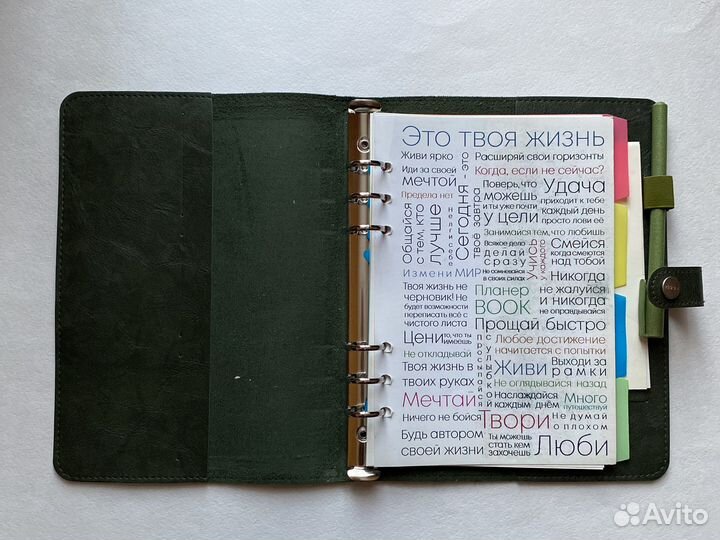 Это твоя жизнь
Живи ярко
Расширяй свои горизонты
Иди за своей
мечтой
Предела нет
Когда, если не сейчас?
Общайся
с тем, кто
лучше
не лги себе
Сегодня - это
твоё завтра
Поверь, что
можешь
и ты уже почти
у цели
Удача
приходит к тебе
каждый день
просто лови её
Занимайся тем, что любишь
Всякое дело
делай
сразу
Не сомневайся
в своих силах
Учись
у каждого
Смейся
когда смеются
над тобой
Измени МИР
Твоя жизнь не
черновик! Не
будет возможности
переписать всё с
чистого листа
Планер
BOOK
Никогда
не жалуйся
и никогда
не оправдывайся
Прощай быстро
Цени
то, что ты
имеешь
Не откладывай
Твоя жизнь в
твоих руках
Просыпайся
с улыбкой
Любое достижение
начинается с попытки
Живи
Выходи за
рамки
Не оглядывайся назад
Мечтай
Наслаждайся
каждым днём
Много
путешествуй
Ничего не бойся
Твори
Не думай
о плохом
Будь автором
своей жизни
Ты можешь
стать кем
захочешь
Люби
Avito